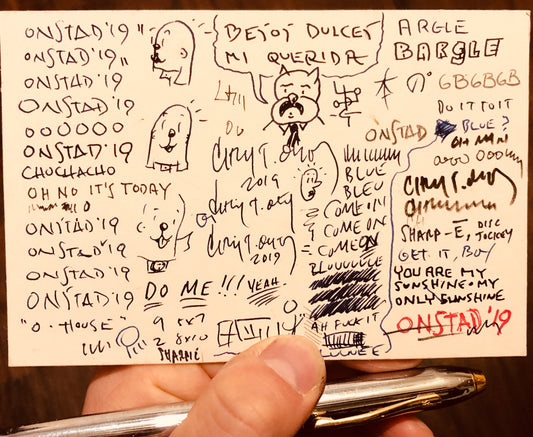 ONSTAD '19 "
"ONSTAD '19 "
ONSTAD '19
ONSTAD '19
OOOOOO
ONSTAD '19
CHOCHACHO
OH NO IT'S TODAY
ONSTAD '19
ONSTAD '19
ONSTAD '19
ONSTAD '19
"O-HOUSE"
BESOS DULCES
MI QUERIDA
2019
2019
DO ME!!! YEAH.
9 5x7
2 8x10
SHARPIE
BLUE
BLEU
COME IN
COME ON
COME ON
BLUUUUUE
AH FUCK IT
ARGLE
BARGLE
GBGBGB
DO IT TO IT
BLUE?
OH MAN
ONSTAD
SHARP-E, DISC
JOCKEY
GET IT, BOY
YOU ARE MY
SUNSHINE • MY
ONLY SUNSHINE
ONSTAD '19